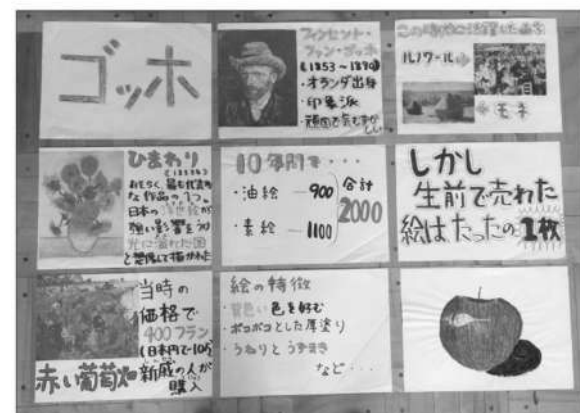 ゴッホ
フィンセント・
ファン・ゴッホ
(1853～1890)
・オランダ出身
・印象派
・頑固で気むずかしい
この時代に活躍した画家
ルノワール⇒
⇐モネ
ひまわり
(1888)
おそらく、最も代表的
な作品の1つ。
日本の浮世絵が
強い影響を
光に溢れた国
と想像して描かれた
10年間で・・・
・油絵 ― 900
・素絵 ― 1100
合計
2000
しかし
生前で売れた
絵はたったの1枚
当時の
価格で
400フラン
(日本円で
新戚の人が
購入
赤い葡萄畑
絵の特徴
・黄色い色を好む
・ボコボコとした厚塗り
・うねりとうずまき
など・・・